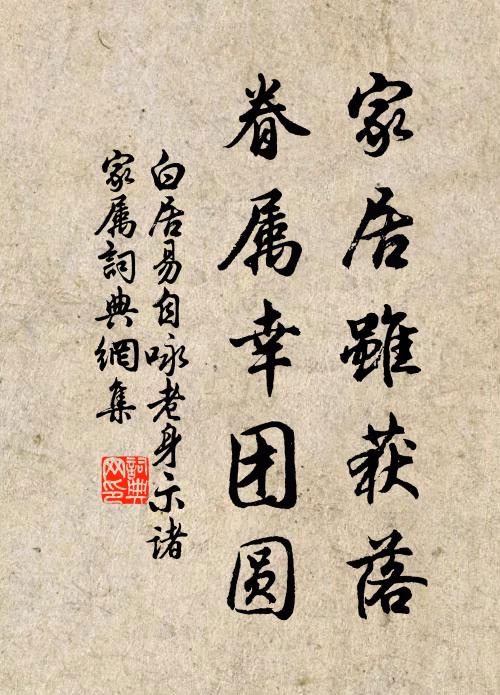 家居雖获落
眷属幸团圆
白居易自咏老身示诸
家属詞典網集
詞典网印